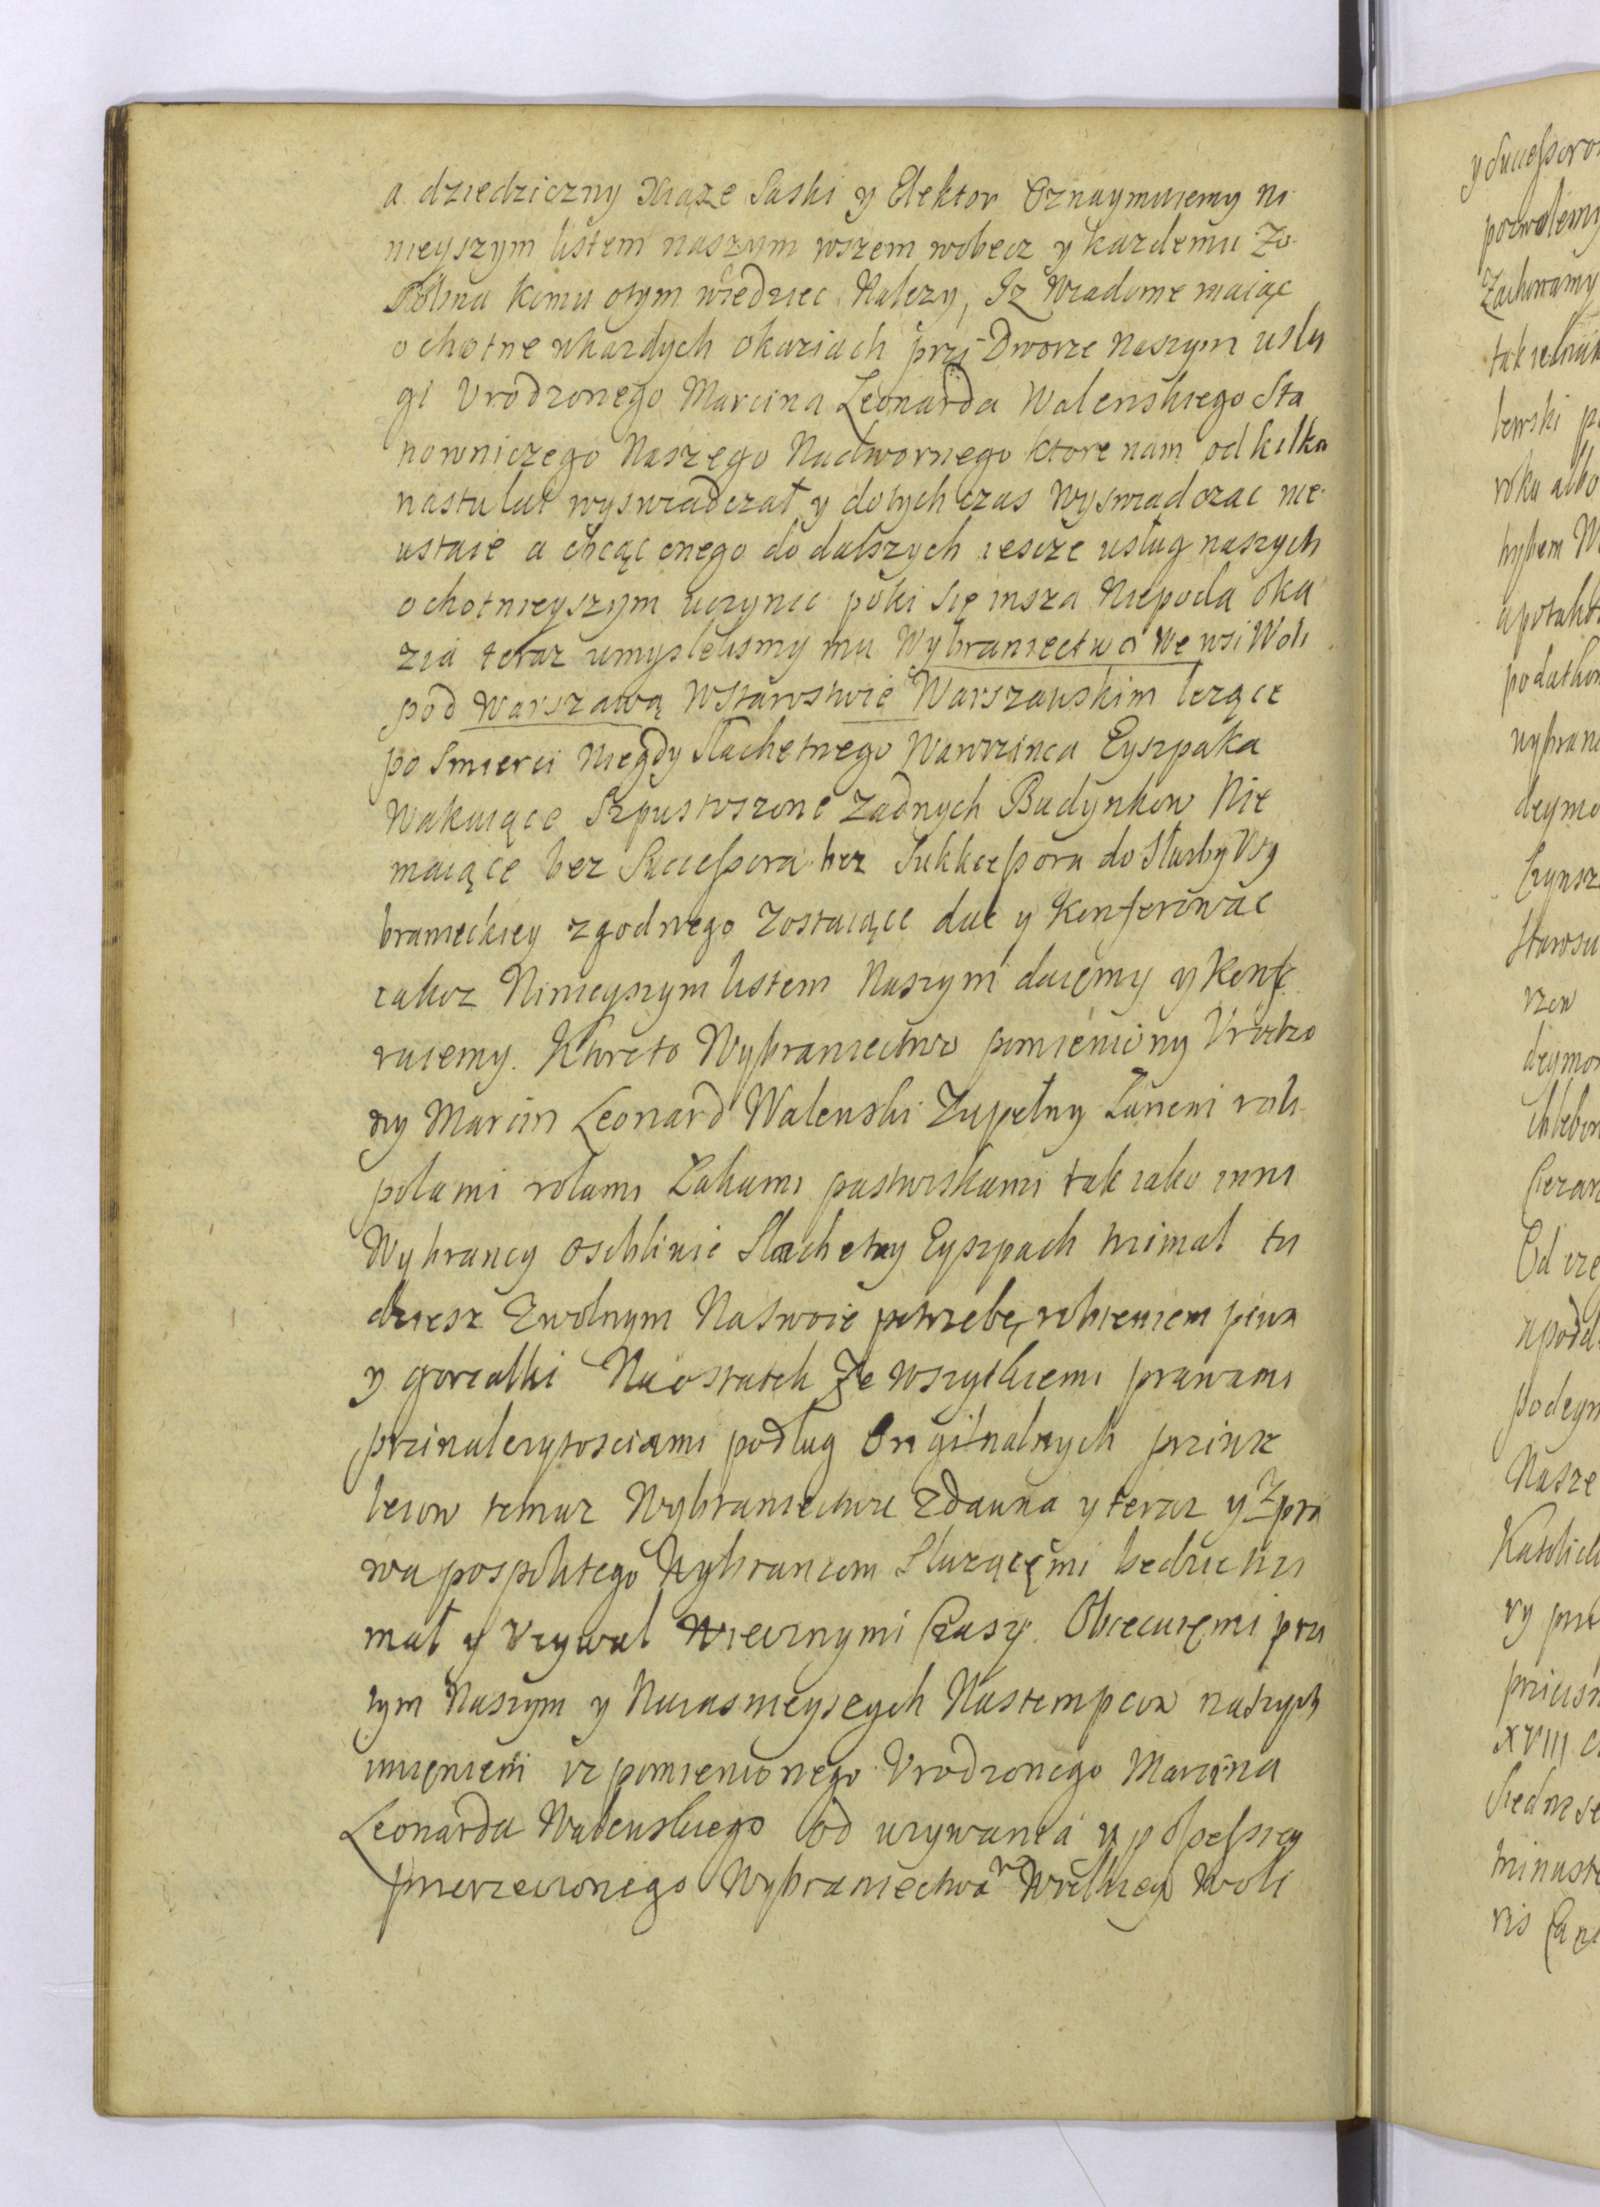 a dziedziczny Xiąze Saski y Elektor Oznaymuiemy ni
nieyszym listem naszym wszem wobecz y kazdemu Zo
sobna komu otym wiedziec Nalezy, Iz Wiadome maiąc
ochotne wkazdych okaziach przi Dworze Naszym uslu
gi Vrodzonego Marcina Leonarda Walenskiego Sta
nowniczego Naszego Nadwornego ktore nam od kilku
nastu lat wyswiadczał y dotych czas wyswiadczac nie
ustaie a chcąc onego do dalszych iescze usług naszych
ochotnieyszym uczynic poki się insza Niepoda oka
zia teraz umyslelismy mu Wybraniectwo We wsi Woli
pod Warszawą WStarostwie Warszawskim lezące
po Smierci Niegdy Slachetnego Wawrzinca Eyszpaka
Wakuiące Szpustoszone Zadnych Budynkow Nie
maiące bez Sucessora bez Sukkcessora do Sluzby Wy
branieckiey zgodnego Zostaiące dac y Konferowac
iakoz Ninieyszym listem Naszym daięmy y Konfe
ruiemy. Ktoreto Wybraniectwo pomieniony Vrodzo
ny Marcin Leonard Walenski Zupełny Lanem roli
polami rolami Lakami pastwiskami tak iako inni
Wybrancy osobliwie Slachetny Eyszpach trzimal tu
dziesz Zwolnym Na Swoie potrzebę robieniem piwa
y gorzalki Na ostatek Ze wszytkiemi prawami
przinalezytosciami podług Orginalnych prziwi
leiow temuz Wybraniectwu Zdawna y teraz y Z pra
wa pospolitego Wybrancom Sluzącęmi bedzie trzi
mał y Vzywal Wiecznymi Czasy. Obiecuięmi przi
tym Naszym y Naiasnieyszych Nastempcow naszych
imięniem iz pomienionego Vrodzonego Marcina
Leonarda Walenskiego od uzywania y possessiey
pmerzeczonego Wybraniectwa w Wielkiey Woli
y Sucessoro
pozwolemy
Zachowamy
tak iednak
lewski
roku albo
a potakt
podatkow
wybrani
dzymo
Czynsz
Starosci
rzon
dzymo
chlebow
Od
podeym
Nasze
Katolick
ry
XVIII